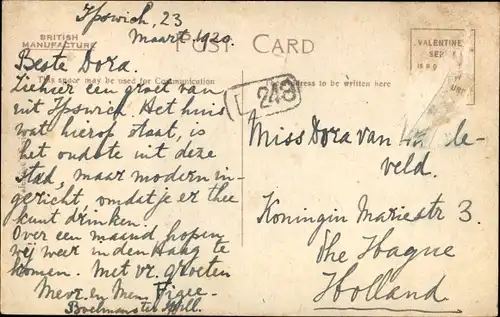 Ipswich, 23
Maart 1920.
BRITISH
MANUFACTURE
POST CARD
Beste Dora.
This space may be used for Communication
Address to be written here
VALENTINE
SER
Ziehier een groet van
uit Ipswich. Het huis
wat hierop staat, is
het oudste uit deze
stad, maar modern in-
gericht, omdat je er thee
kunt drinken.
Over een maand hopen
wij weer in den Haag te
komen. Met vr. groeten
Mevr. en Men. Figee-
L 248
Miss Dora van
veld.
Koningin Mariestr 3.
The Hague
Holland.